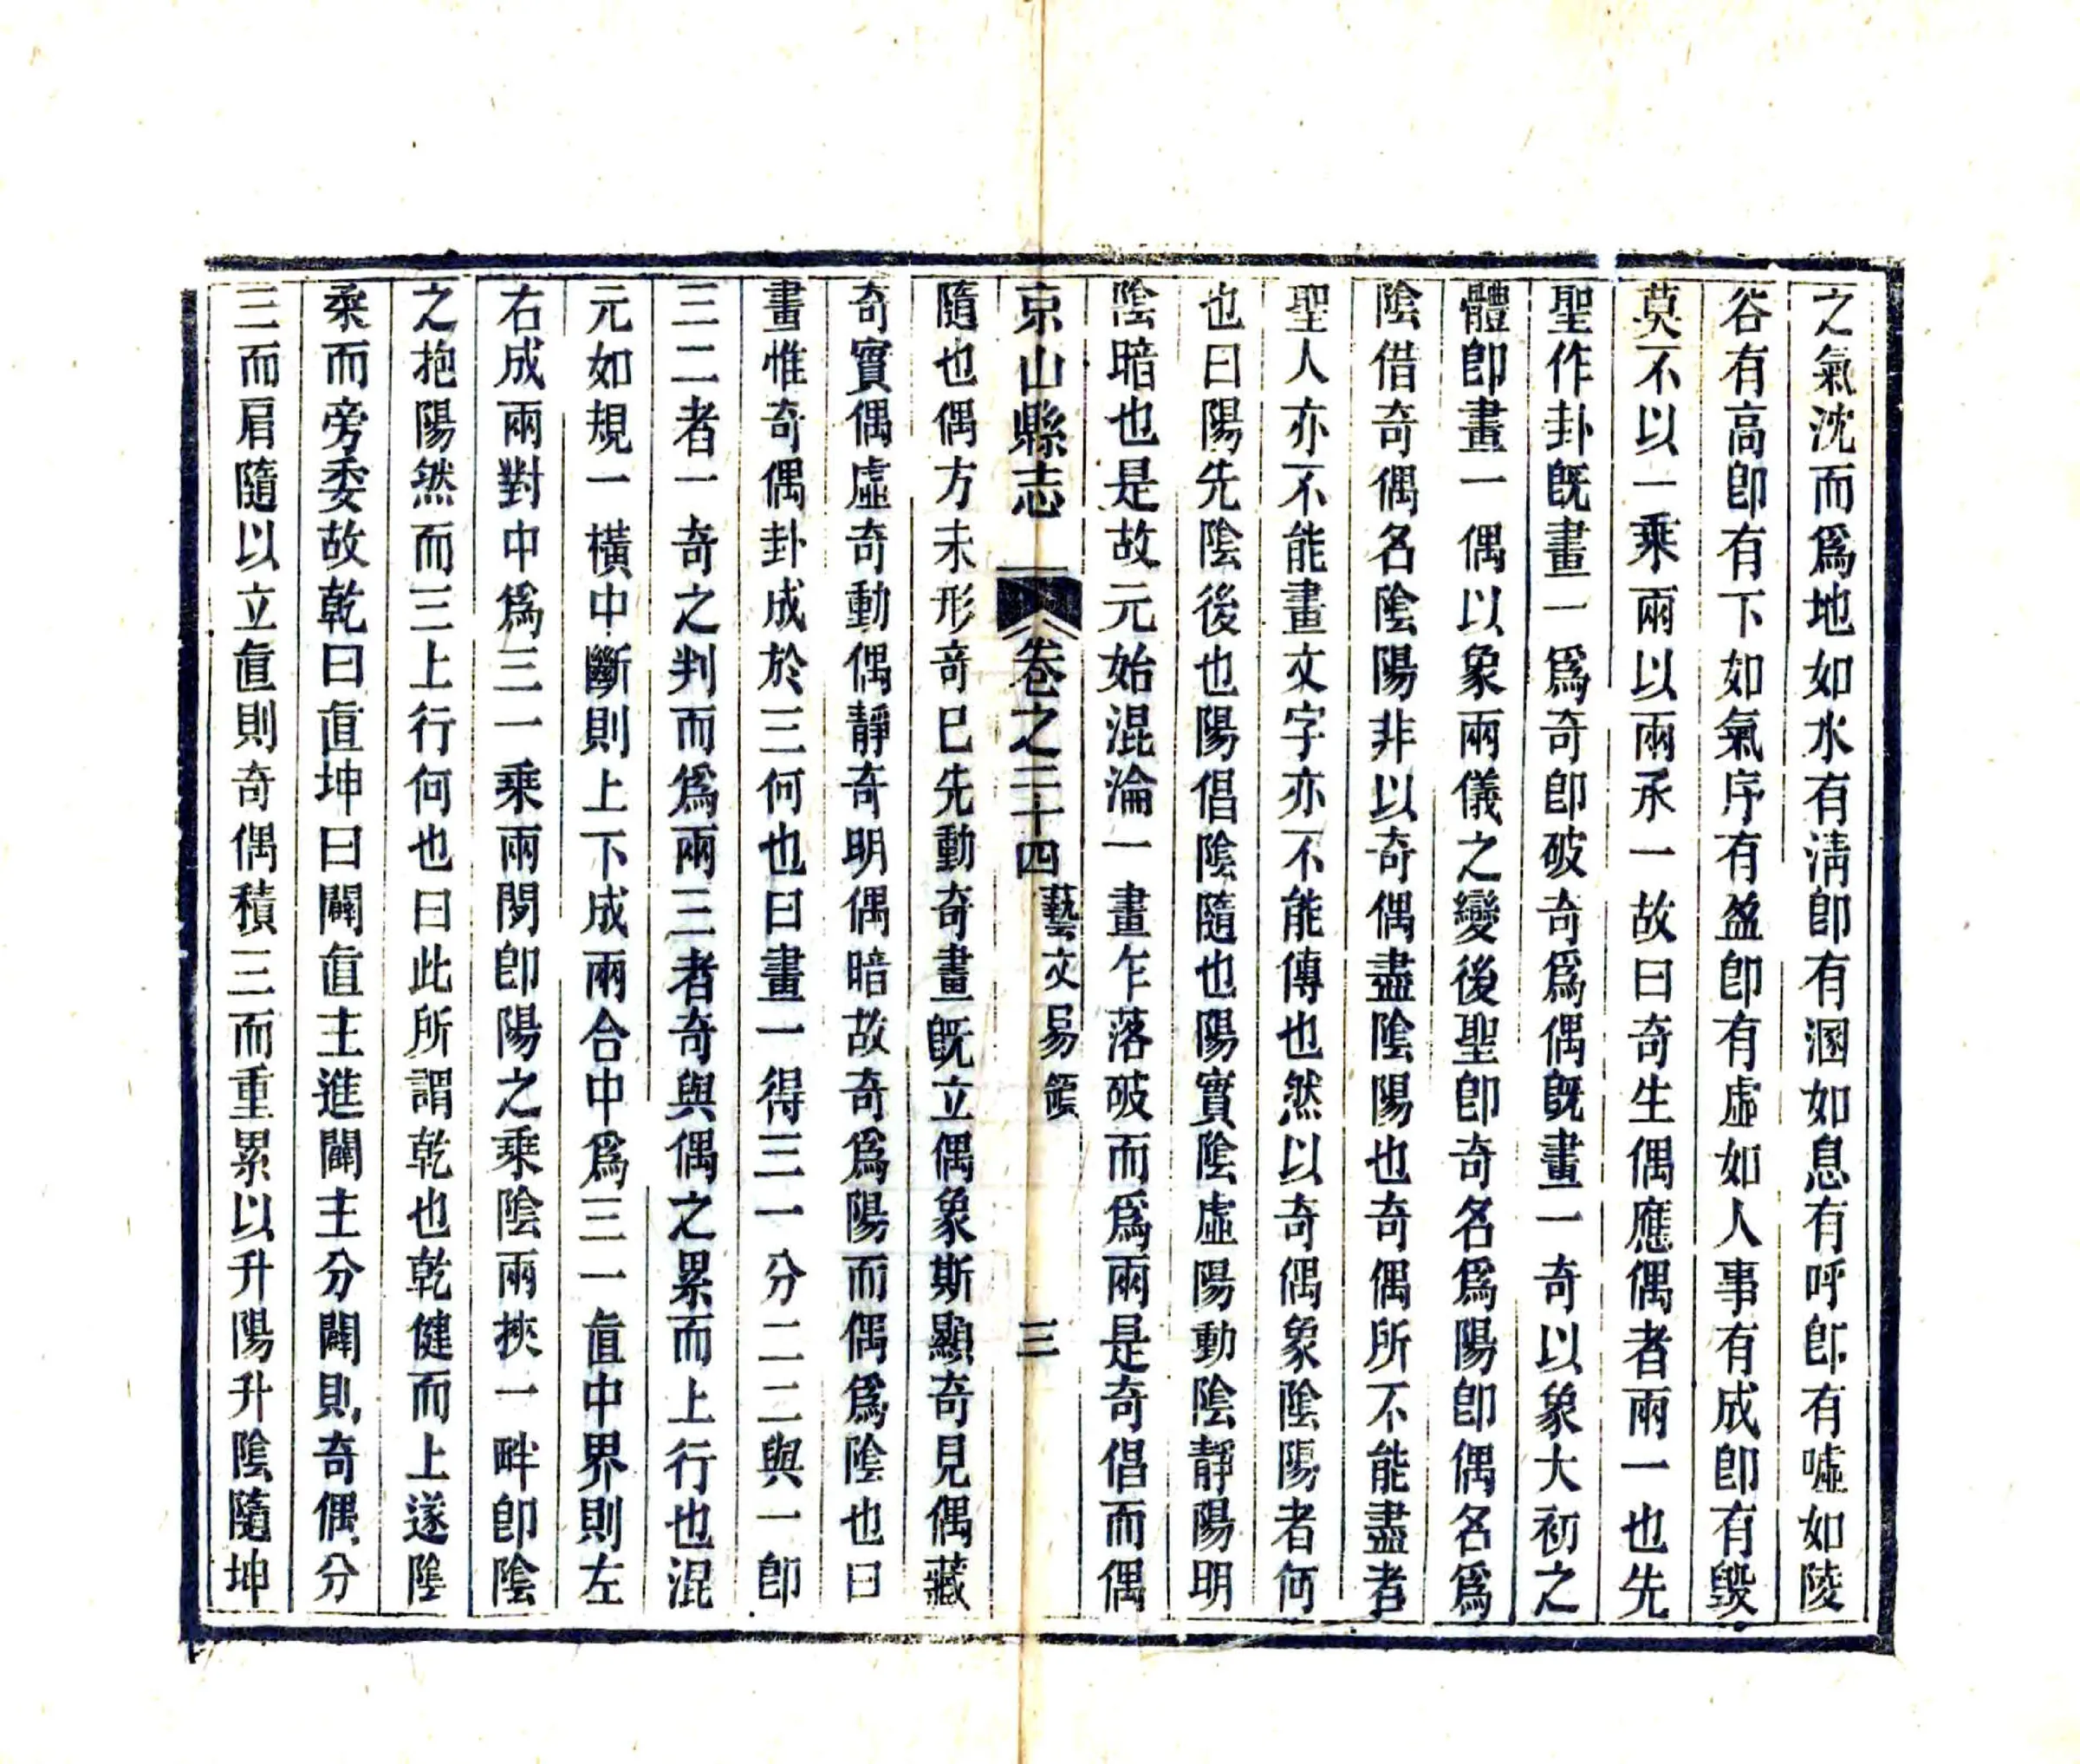 之氣沈而爲地如水有淸卽有溷如息有呼卽有噓如陵
谷有高卽有下如氣序有盈卽有虛如人事有成卽有毀
莫不以一乘兩以兩承一故曰奇生偶應偶者兩一也先
聖作卦旣畫一爲奇卽破奇爲偶旣畫一奇以象大初之
體卽畫一偶以象兩儀之變後聖卽奇名爲陽卽偶名爲
陰借奇偶名陰陽非以奇偶盡陰陽也奇偶所不能盡者
聖人亦不能畫文字亦不能傳也然以奇偶象陰陽者何
也曰陽先陰後也陽倡陰隨也陽實陰虛陽動陰靜陽明
陰暗也是故元始混淪一畫乍落破而爲兩是奇倡而偶
京山縣志 卷之二十四 藝文易領 三
隨也偶方未形奇巳先動奇畫旣立偶象斯顯奇見偶藏
奇實偶虛奇動偶靜奇明偶暗故奇爲陽而偶爲陰也曰
畫惟奇偶卦成於三何也曰畫一得三一分二二與一卽
三二者一奇之判而爲兩三者奇與偶之累而上行也混
元如規一橫中斷則上下成兩合中爲三一直中界則左
右成兩對中爲三一乘兩閒卽陽之乘陰兩挾一畔卽陰
之抱陽然而三上行何也曰此所謂乾也乾健而上遂陰
柔而旁委故乾曰直坤曰闢直主進闢主分闢則奇偶分
三而肩隨以立直則奇偶積三而重累以升陽升陰隨坤